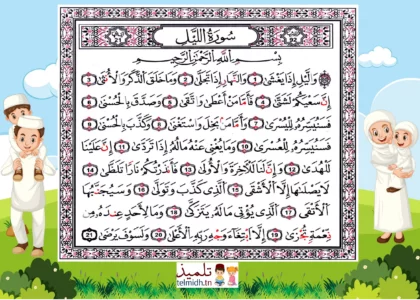 سُورَةُ اللَّيْلِ
بِسْمِ اللَّهِ الرَّحْمَٰنِ الرَّحِيمِ
وَالَّيْلِ إِذَا يَغْشَىٰ 1 وَالنَّهَارِ إِذَا تَجَلَّىٰ 2 وَمَا خَلَقَ الذَّكَرَ وَالْأُنثَىٰ 3
إِنَّ سَعْيَكُمْ لَشَتَّىٰ 4 فَأَمَّا مَنْ أَعْطَىٰ وَاتَّقَىٰ 5 وَصَدَّقَ بِالْحُسْنَىٰ 6
فَسَنُيَسِّرُهُ لِلْيُسْرَىٰ 7 وَأَمَّا مَنْ بَخِلَ وَاسْتَغْنَىٰ 8 وَكَذَّبَ بِالْحُسْنَىٰ 9
فَسَنُيَسِّرُهُ لِلْعُسْرَىٰ 10 وَمَا يُغْنِي عَنْهُ مَالُهُ إِذَا تَرَدَّىٰ 11 إِنَّ عَلَيْنَا
لَلْهُدَىٰ 12 وَإِنَّ لَنَا لَلْآخِرَةَ وَالْأُولَىٰ 13 فَأَنذَرْتُكُمْ نَارًا تَلَظَّىٰ 14
لَا يَصْلَاهَا إِلَّا الْأَشْقَى 15 الَّذِي كَذَّبَ وَتَوَلَّىٰ 16 وَسَيُجَنَّبُهَا
الْأَتْقَى 17 الَّذِي يُؤْتِي مَالَهُ يَتَزَكَّىٰ 18 وَمَا لِأَحَدٍ عِندَهُ مِن
نِّعْمَةٍ تُجْزَىٰ 19 إِلَّا ابْتِغَاءَ وَجْهِ رَبِّهِ الْأَعْلَىٰ 20 وَلَسَوْفَ يَرْضَىٰ 21
تلميذ
telmidh.tn